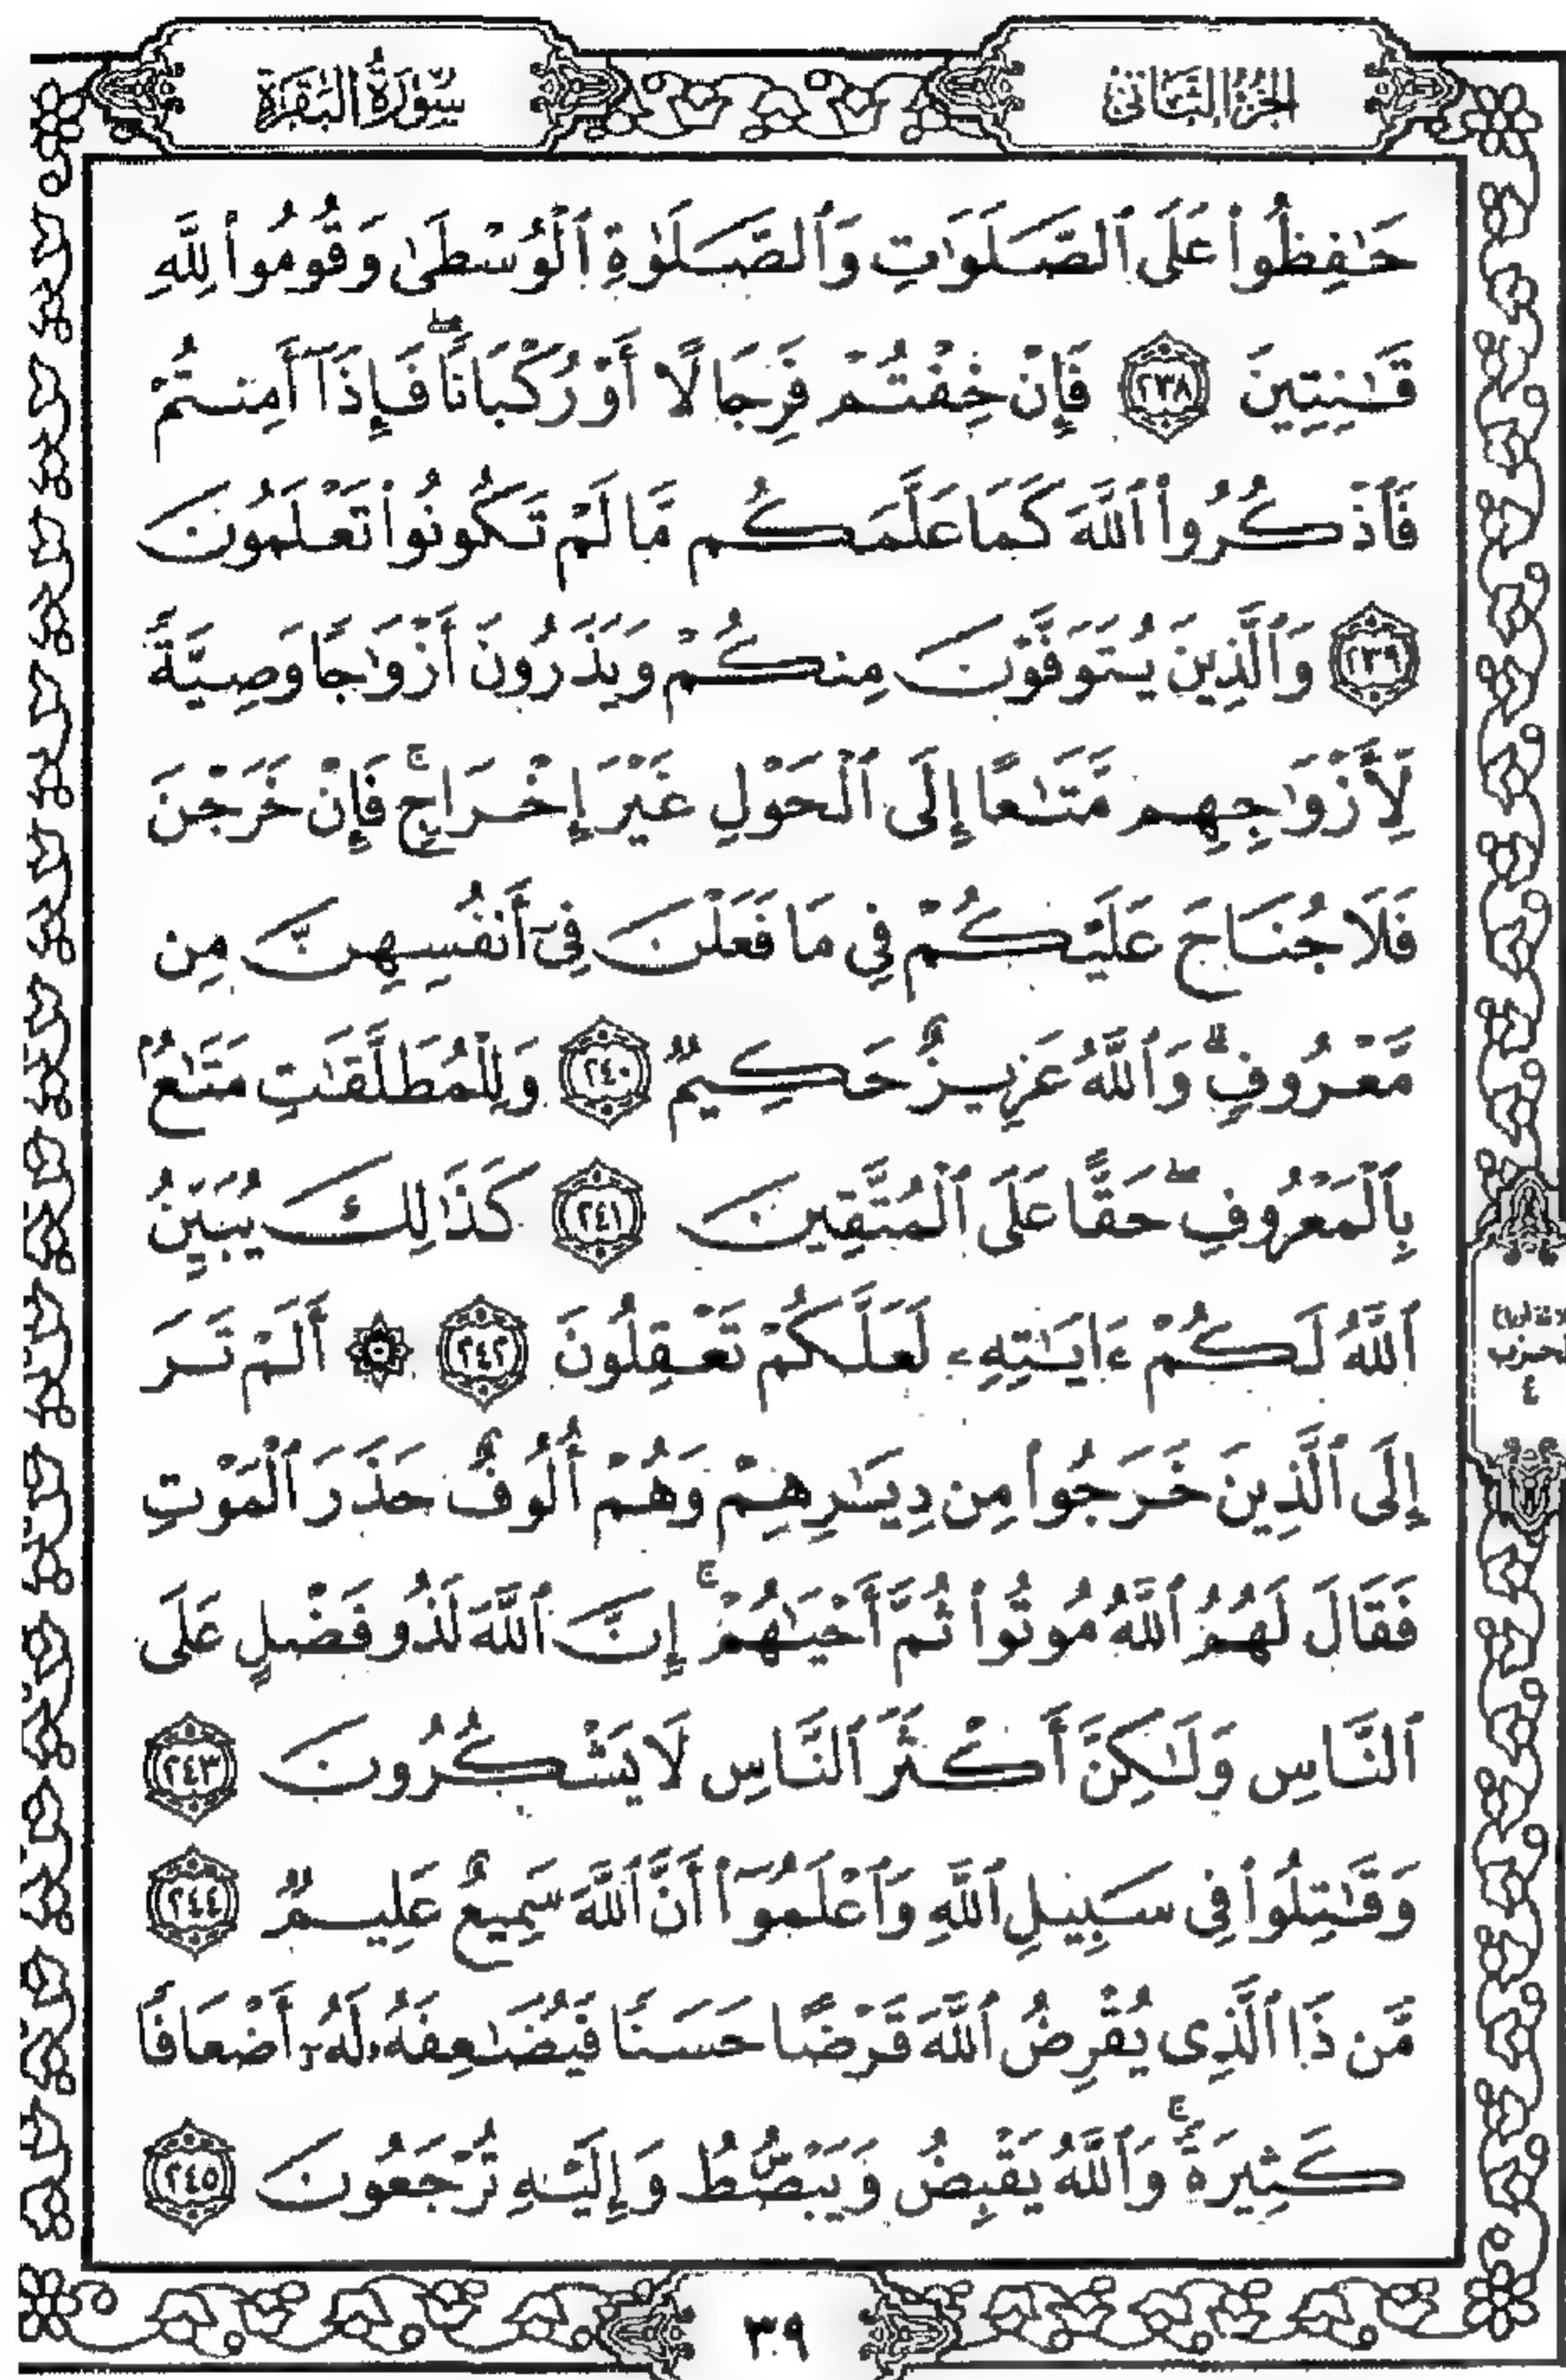 الجُزْءُ الثَّانِي
سُورَةُ البَقَرَةِ
حَٰفِظُوا۟ عَلَى ٱلصَّلَوَٰتِ وَٱلصَّلَوٰةِ ٱلْوُسْطَىٰ وَقُومُوا۟ لِلَّهِ
قَٰنِتِينَ ٢٣٨ فَإِنْ خِفْتُمْ فَرِجَالًا أَوْ رُكْبَانًاۖ فَإِذَآ أَمِنتُمْ
فَٱذْكُرُوا۟ ٱللَّهَ كَمَا عَلَّمَكُم مَّا لَمْ تَكُونُوا۟ تَعْلَمُونَ
٢٣٩ وَٱلَّذِينَ يُتَوَفَّوْنَ مِنكُمْ وَيَذَرُونَ أَزْوَٰجًا وَصِيَّةً
لِّأَزْوَٰجِهِم مَّتَٰعًا إِلَى ٱلْحَوْلِ غَيْرَ إِخْرَاجٍۚ فَإِنْ خَرَجْنَ
فَلَا جُنَاحَ عَلَيْكُمْ فِي مَا فَعَلْنَ فِىٓ أَنفُسِهِنَّ مِن
مَّعْرُوفٍۗ وَٱللَّهُ عَزِيزٌ حَكِيمٌ ٢٤٠ وَلِلْمُطَلَّقَٰتِ مَتَٰعٌۢ
بِٱلْمَعْرُوفِۖ حَقًّا عَلَى ٱلْمُتَّقِينَ ٢٤١ كَذَٰلِكَ يُبَيِّنُ
ٱللَّهُ لَكُمْ ءَايَٰتِهِۦ لَعَلَّكُمْ تَعْقِلُونَ ٢٤٢ ۞ أَلَمْ تَرَ
إِلَى ٱلَّذِينَ خَرَجُوا۟ مِن دِيَٰرِهِمْ وَهُمْ أُلُوفٌ حَذَرَ ٱلْمَوْتِ
فَقَالَ لَهُمُ ٱللَّهُ مُوتُوا۟ ثُمَّ أَحْيَٰهُمْۚ إِنَّ ٱللَّهَ لَذُو فَضْلٍ عَلَى
ٱلنَّاسِ وَلَٰكِنَّ أَكْثَرَ ٱلنَّاسِ لَا يَشْكُرُونَ ٢٤٣
وَقَٰتِلُوا۟ فِى سَبِيلِ ٱللَّهِ وَٱعْلَمُوٓا۟ أَنَّ ٱللَّهَ سَمِيعٌ عَلِيمٌ ٢٤٤
مَّن ذَا ٱلَّذِى يُقْرِضُ ٱللَّهَ قَرْضًا حَسَنًا فَيُضَٰعِفَهُۥ لَهُۥٓ أَضْعَافًا
كَثِيرَةًۚ وَٱللَّهُ يَقْبِضُ وَيَبْصُۜطُ وَإِلَيْهِ تُرْجَعُونَ ٢٤٥
الحزب
٤
٣٩